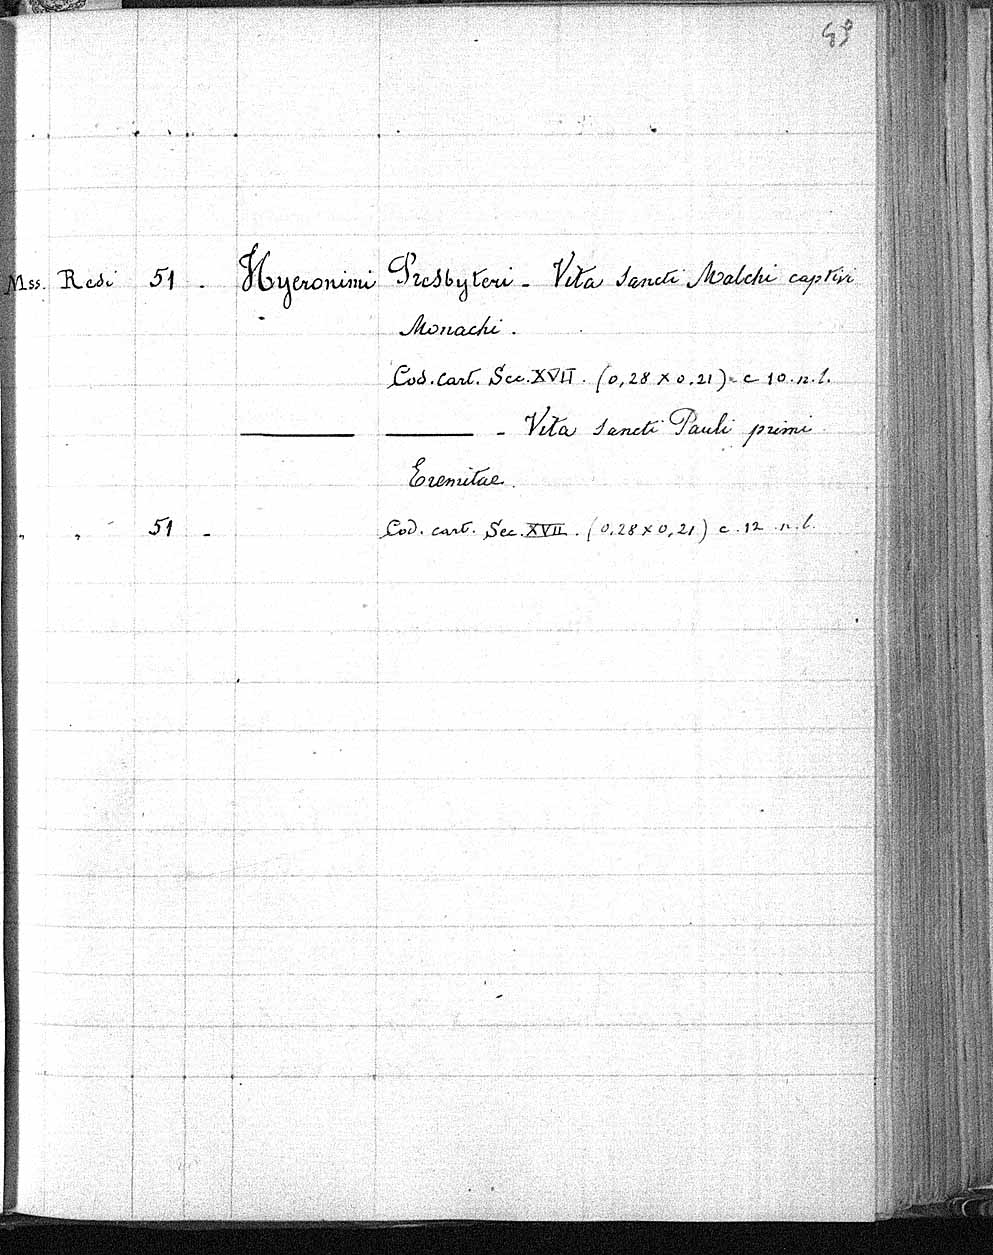 49
Mss. Redi 51 - Hyeronimi Presbyteri - Vita Sancti Malchi captivi
Monachi.
Cod. cart. Sec. XVII. (0,28 x 0,21) - c 10. n. l.
——— ——— - Vita Sancti Pauli primi
Eremitae.
" " 51 - Cod. cart. Sec. XVII. (0,28 x 0,21) c. 12 n. l.